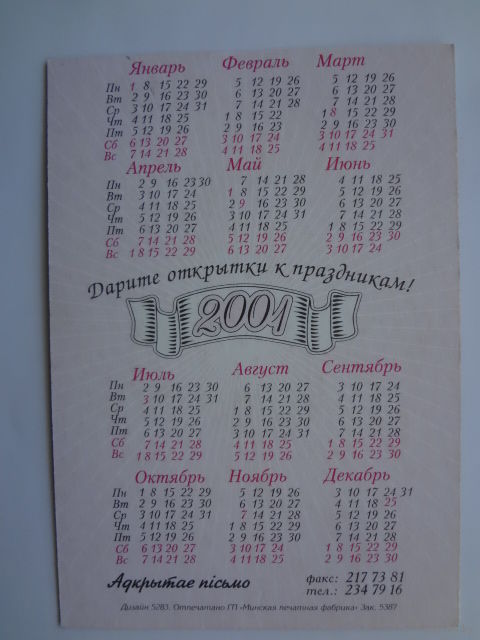 Январь Февраль Март
Пн 1 8 15 22 29 5 12 19 26 5 12 19 26
Вт 2 9 16 23 30 6 13 20 27 6 13 20 27
Ср 3 10 17 24 31 7 14 21 28 7 14 21 28
Чт 4 11 18 25 1 8 15 22 1 8 15 22 29
Пт 5 12 19 26 2 9 16 23 2 9 16 23 30
Сб 6 13 20 27 3 10 17 24 3 10 17 24 31
Вс 7 14 21 28 4 11 18 25 4 11 18 25
Апрель Май Июнь
Пн 2 9 16 23 30 7 14 21 28 4 11 18 25
Вт 3 10 17 24 1 8 15 22 29 5 12 19 26
Ср 4 11 18 25 2 9 16 23 30 6 13 20 27
Чт 5 12 19 26 3 10 17 24 31 7 14 21 28
Пт 6 13 20 27 4 11 18 25 1 8 15 22 29
Сб 7 14 21 28 5 12 19 26 2 9 16 23 30
Вс 1 8 15 22 29 6 13 20 27 3 10 17 24
Дарите открытки к праздникам!
2001
Июль Август Сентябрь
Пн 2 9 16 23 30 6 13 20 27 3 10 17 24
Вт 3 10 17 24 31 7 14 21 28 4 11 18 25
Ср 4 11 18 25 1 8 15 22 29 5 12 19 26
Чт 5 12 19 26 2 9 16 23 30 6 13 20 27
Пт 6 13 20 27 3 10 17 24 31 7 14 21 28
Сб 7 14 21 28 4 11 18 25 1 8 15 22 29
Вс 1 8 15 22 29 5 12 19 26 2 9 16 23 30
Октябрь Ноябрь Декабрь
Пн 1 8 15 22 29 5 12 19 26 3 10 17 24 31
Вт 2 9 16 23 30 6 13 20 27 4 11 18 25
Ср 3 10 17 24 31 7 14 21 28 5 12 19 26
Чт 4 11 18 25 1 8 15 22 29 6 13 20 27
Пт 5 12 19 26 2 9 16 23 30 7 14 21 28
Сб 6 13 20 27 3 10 17 24 1 8 15 22 29
Вс 7 14 21 28 4 11 18 25 2 9 16 23 30
Адкрытае пісьмо факс: 217 73 81
тел.: 234 79 16
Дизайн 5283. Отпечатано ГП «Минская печатная фабрика» Зак. 5387